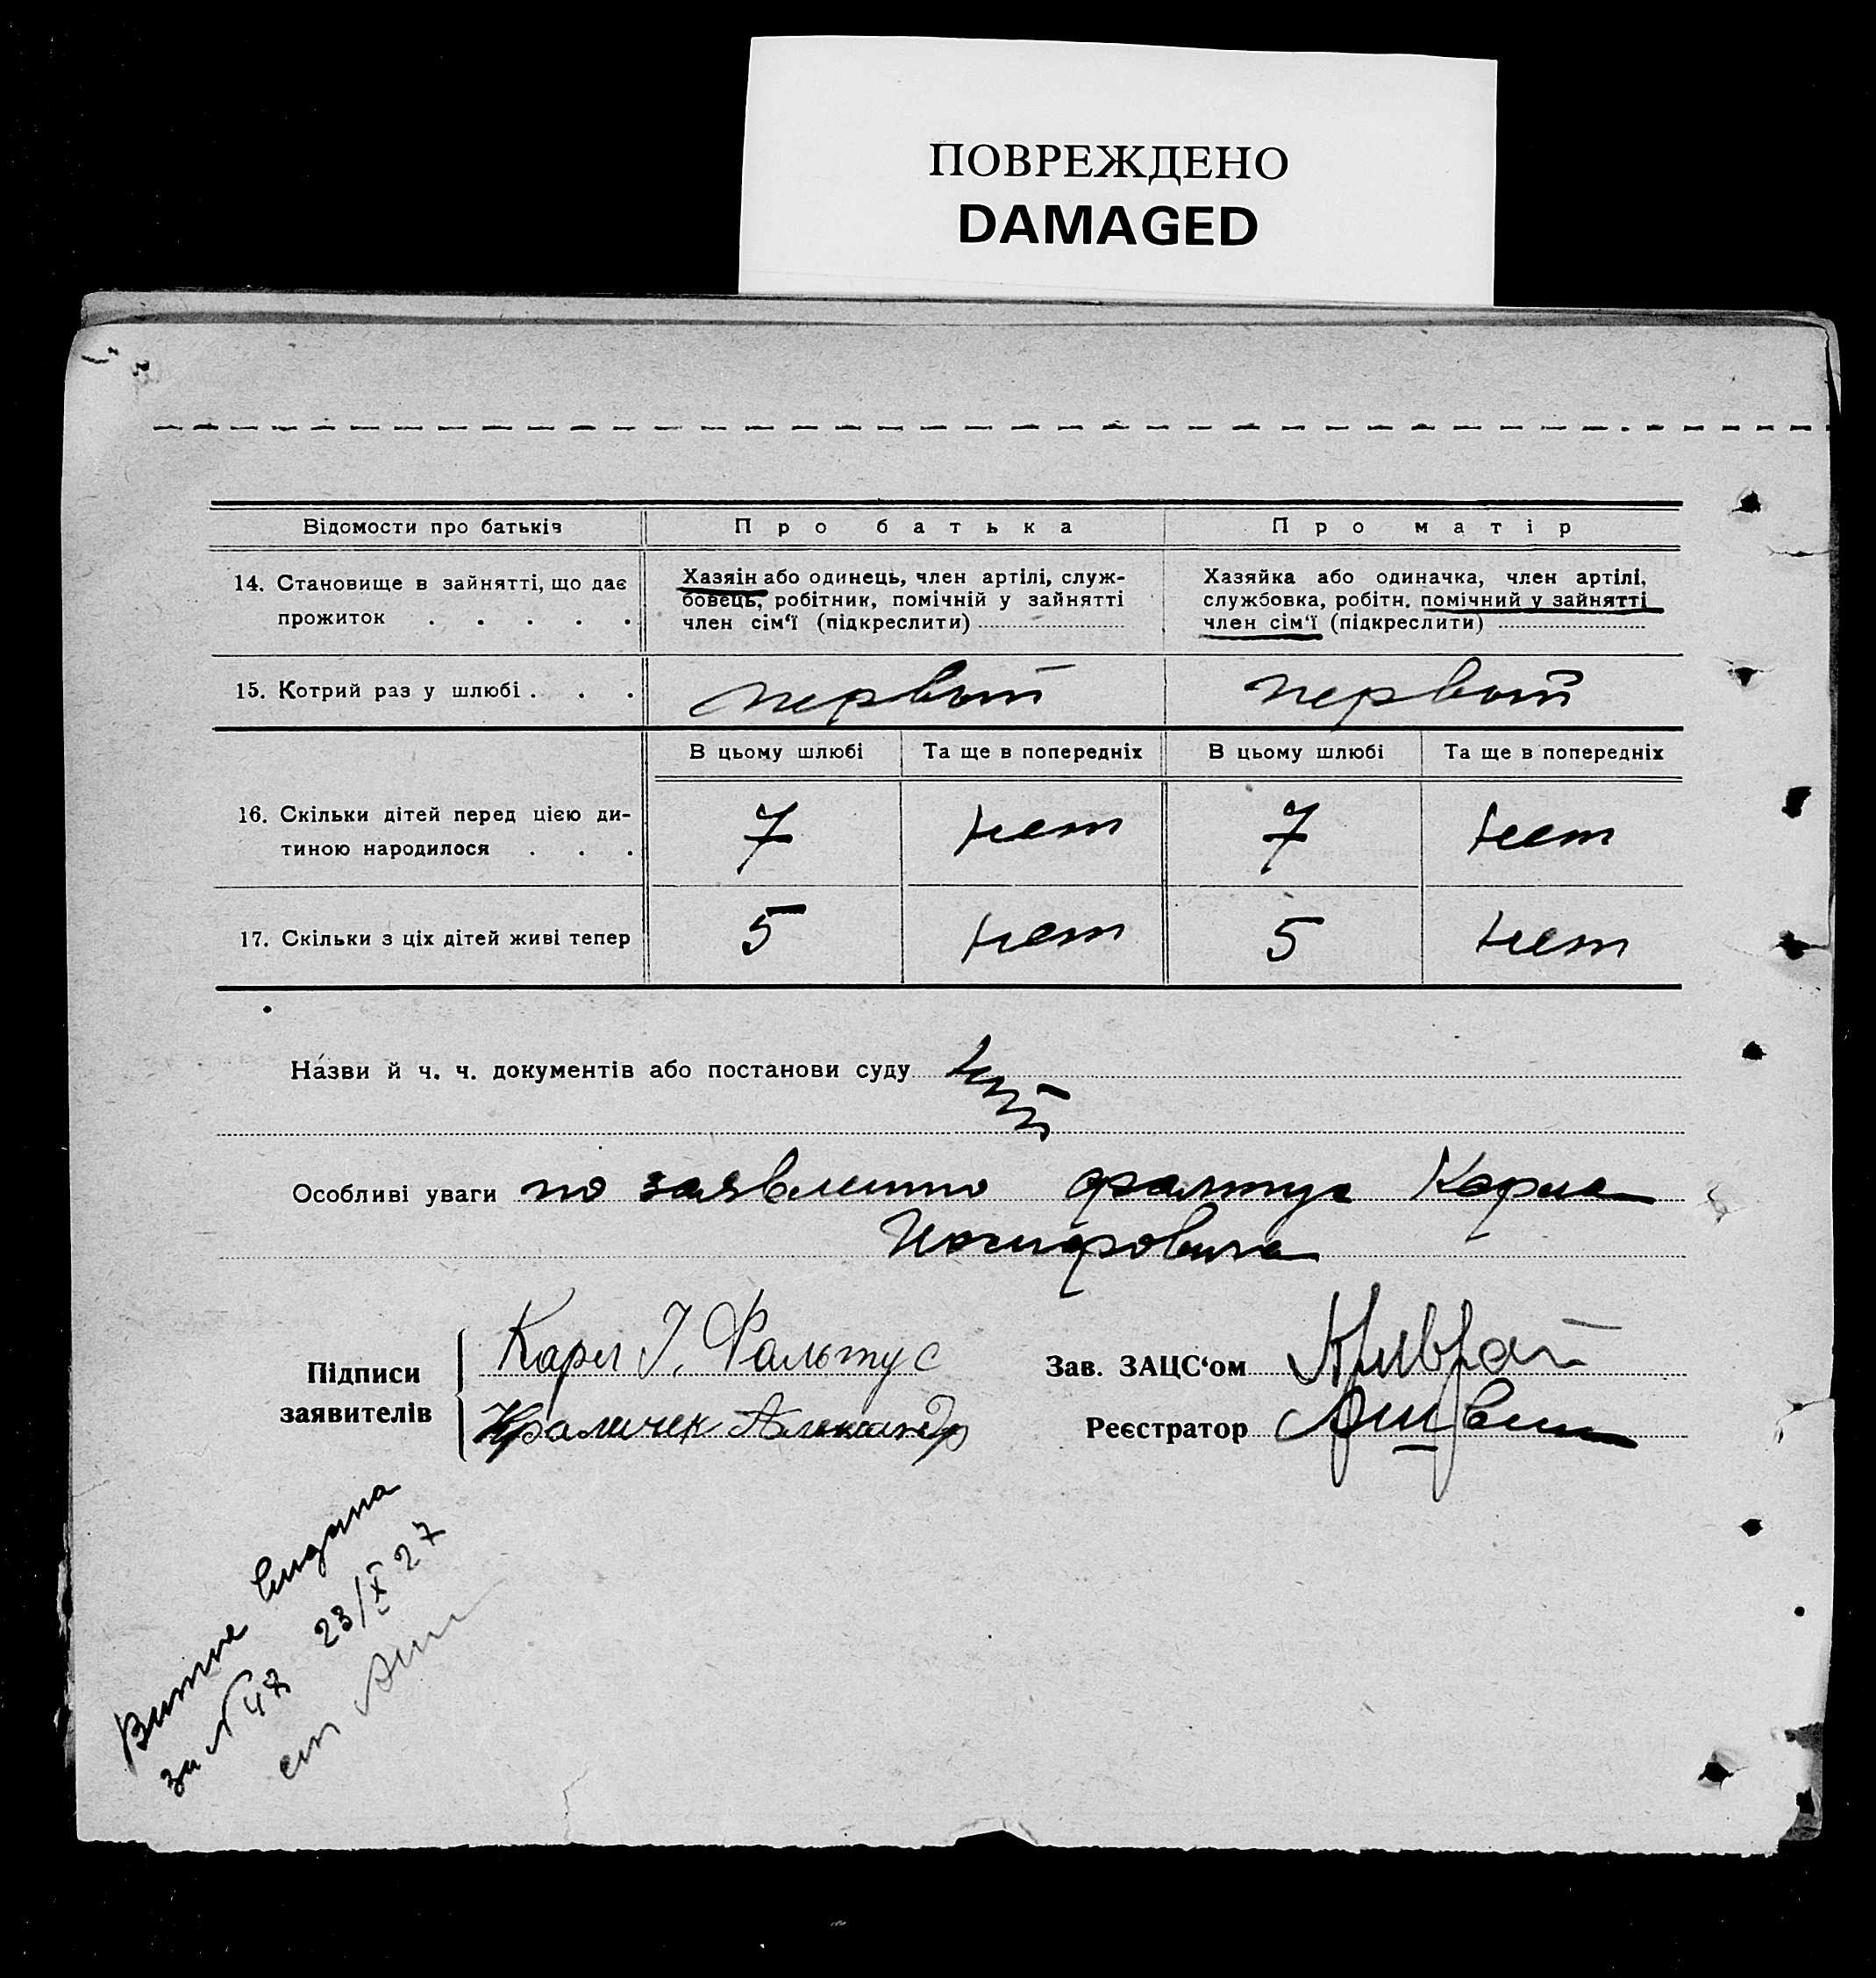 ПОВРЕЖДЕНО
DAMAGED
Відомости про батьків
Про батька
Про матір
14. Становище в зайнятті, що дає
прожиток . . . . .
Хазяін або одинець, член артілі, служ-
бовець, робітник, помічній у зайнятті
член сім‘ї (підкреслити)
Хазяйка або одиначка, член артілі,
службовка, робітн. помічний у зайнятті
член сім‘ї (підкреслити)
15. Котрий раз у шлюбі . . .
первый
первый
В цьому шлюбі
Та ще в попередніх
В цьому шлюбі
Та ще в попередніх
16. Скільки дітей перед цією ди-
тиною народилося . . .
7
нет
7
нет
17. Скільки з ціх дітей живі тепер
5
нет
5
нет
Назви й ч. ч. документів або постанови суду
Особливі уваги по заявлению Фалтус Карла
Підписи
заявителів
Карл І. Фальтус
Краличек Александр
Зав. ЗАЦС‘ом
Реєстратор
видана
за № 47 23/X 27